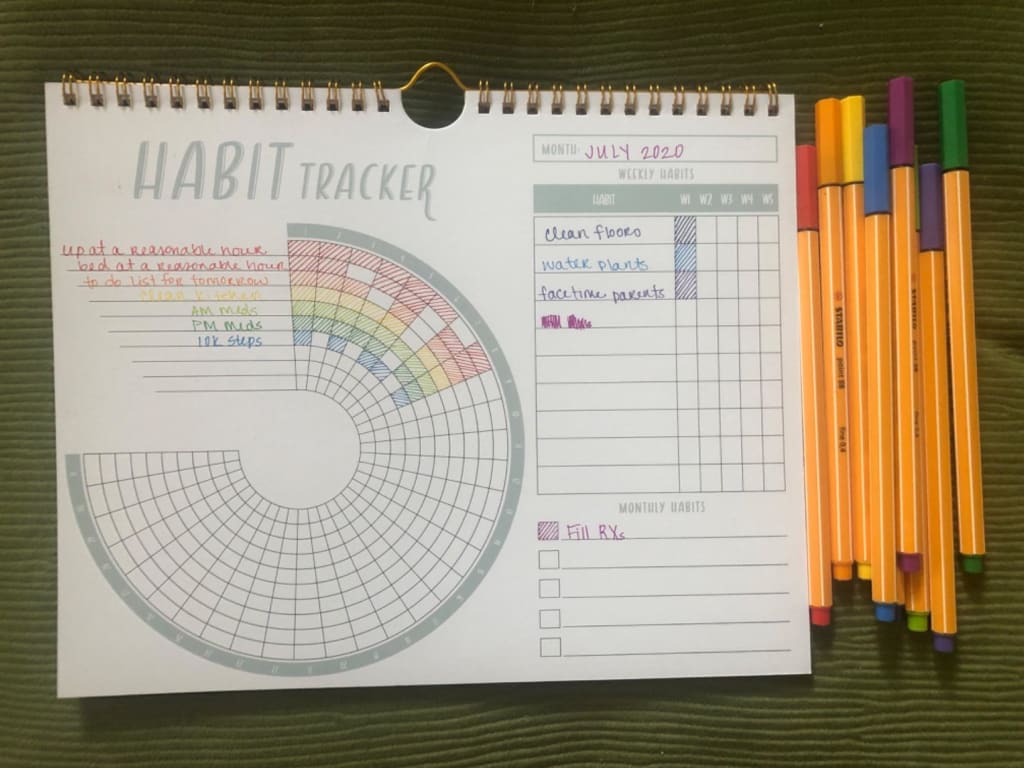 HABIT TRACKER
MONTH: JULY 2020
WEEKLY HABITS
HABIT W1 W2 W3 W4 W5
up at a reasonable hour
bed at a reasonable hour
to do list for tomorrow
clean kitchen
AM meds
PM meds
10k steps
clean floors
water plants
facetime parents
MONTHLY HABITS
Fill RXs
STABILO point 88 fine 0,4